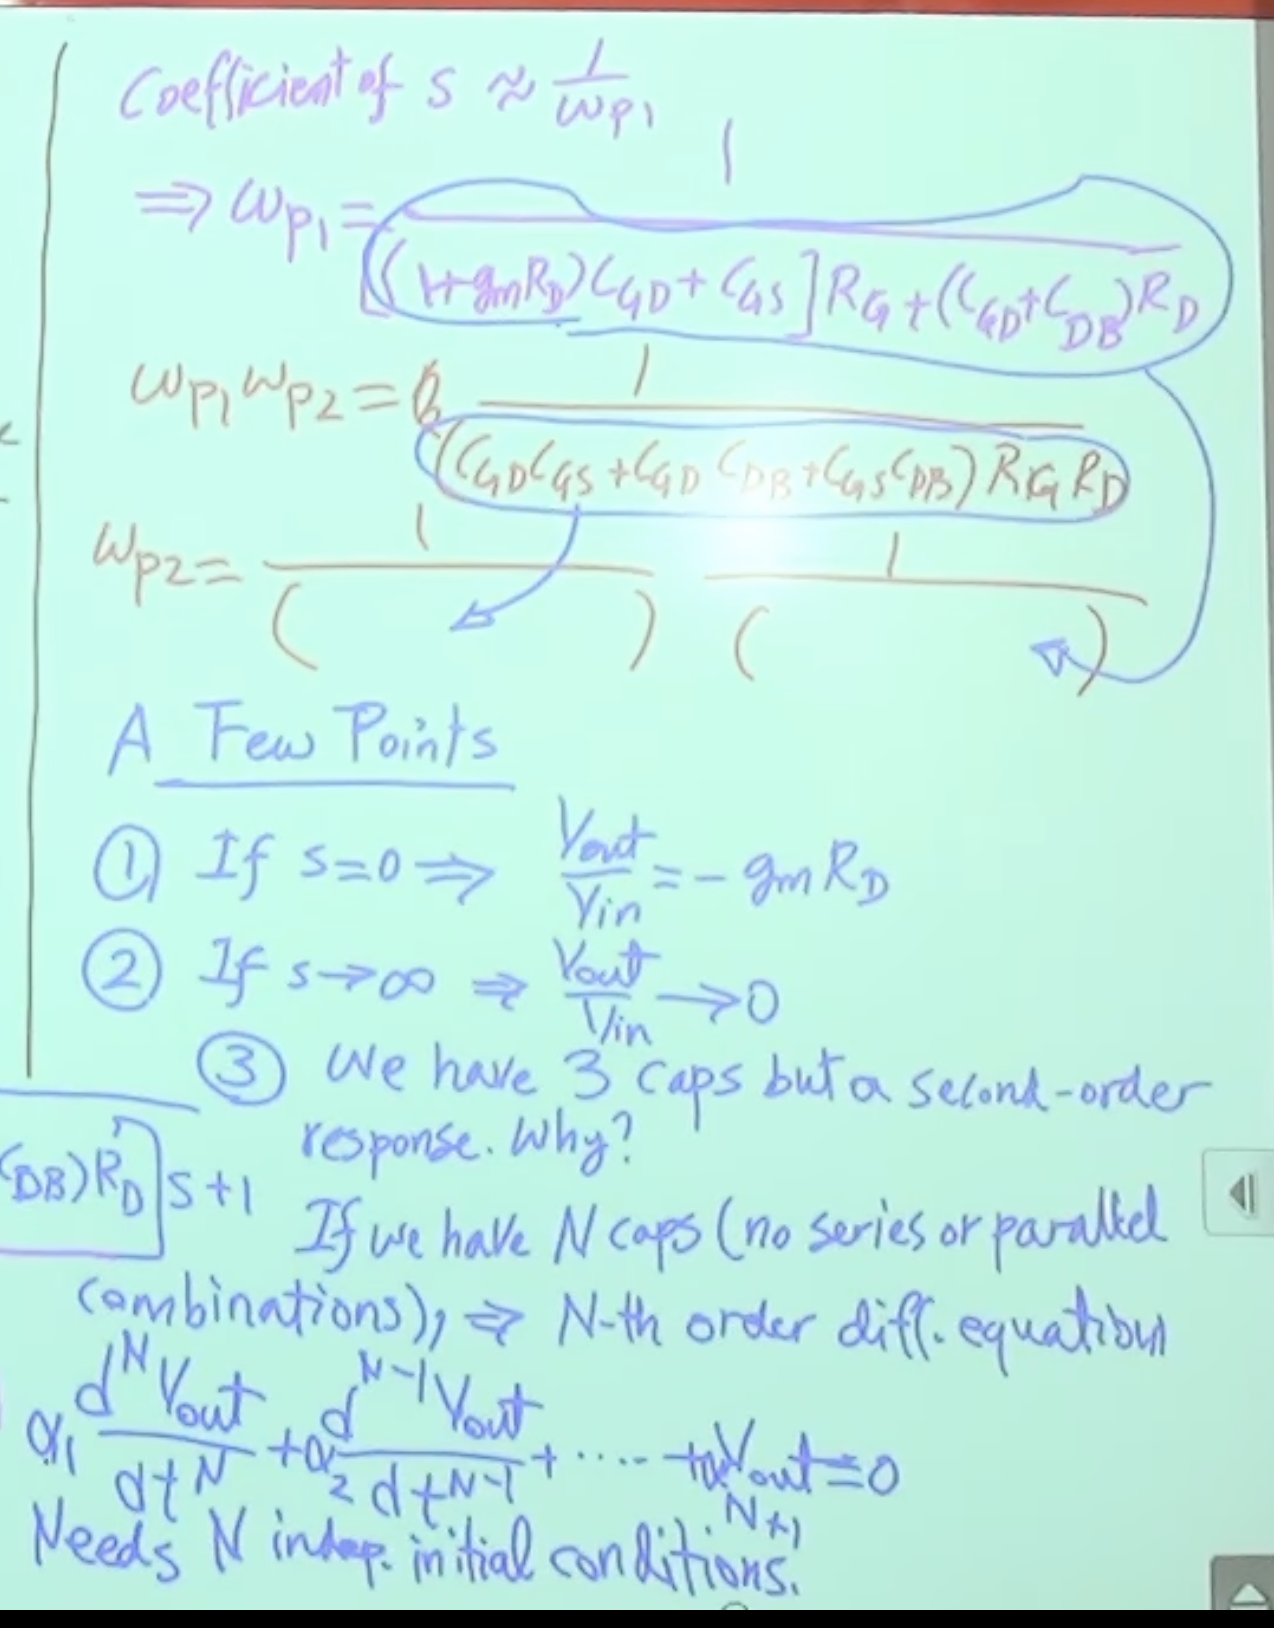 Coefficient of s ≈ 1/ωp1
⇒ ωp1 = 1/[(1+gmRD)CGD+CGS]RG+(CGD+CDB)RD
ωp1 ωp2 = 1/(CGDCGS+CGD CDB+CGSCDB) RG RD
ωp2 = 1/( ) 1/( )
A Few Points
① If s=0 ⇒ Vout/Vin = - gm RD
② If s→∞ ⇒ Vout/Vin → 0
③ We have 3 caps but a second-order
response. Why?
DB)RD]s+1
If we have N caps (no series or parallel
combinations), ⇒ N-th order diff. equation
α1 d^N Vout/dt^N + α2 d^N-1 Vout/dt^N-1 + .... + αN+1 Vout = 0
Needs N indep. initial conditions.